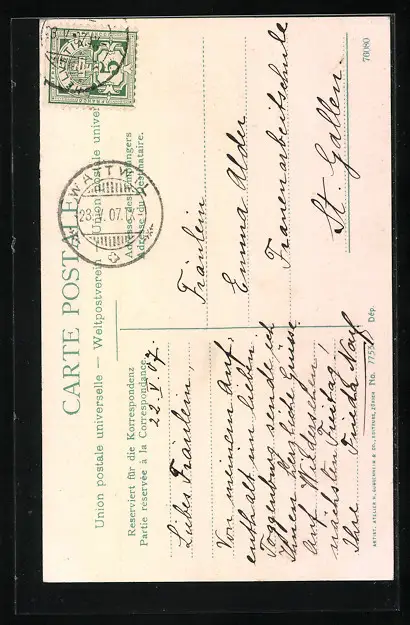 CARTE POSTALE
Union postale universelle — Weltpostverein — Union postale univer
Reserviert für die Korrespondenz
Partie reservée à la Correspondance.
Adresse des Empfängers
Adresse du destinataire.
5
WATTWIL
23. I. 07.
22. I. 07.
Liebes Fräulein,
Von meinem Auf-
enthalt im lieben
Toggenburg sende ich
Ihnen herzliche Grüsse.
Auf Wiedersehen
nächsten Freitag.
Ihre Frieda
Fräulein
Emma Alder
Frauenarbeitschule
St. Gallen.
ARTIST. ATELIER H. GUGGENHEIM & CO., EDITEURS, ZÜRICH No. Dép.
70080